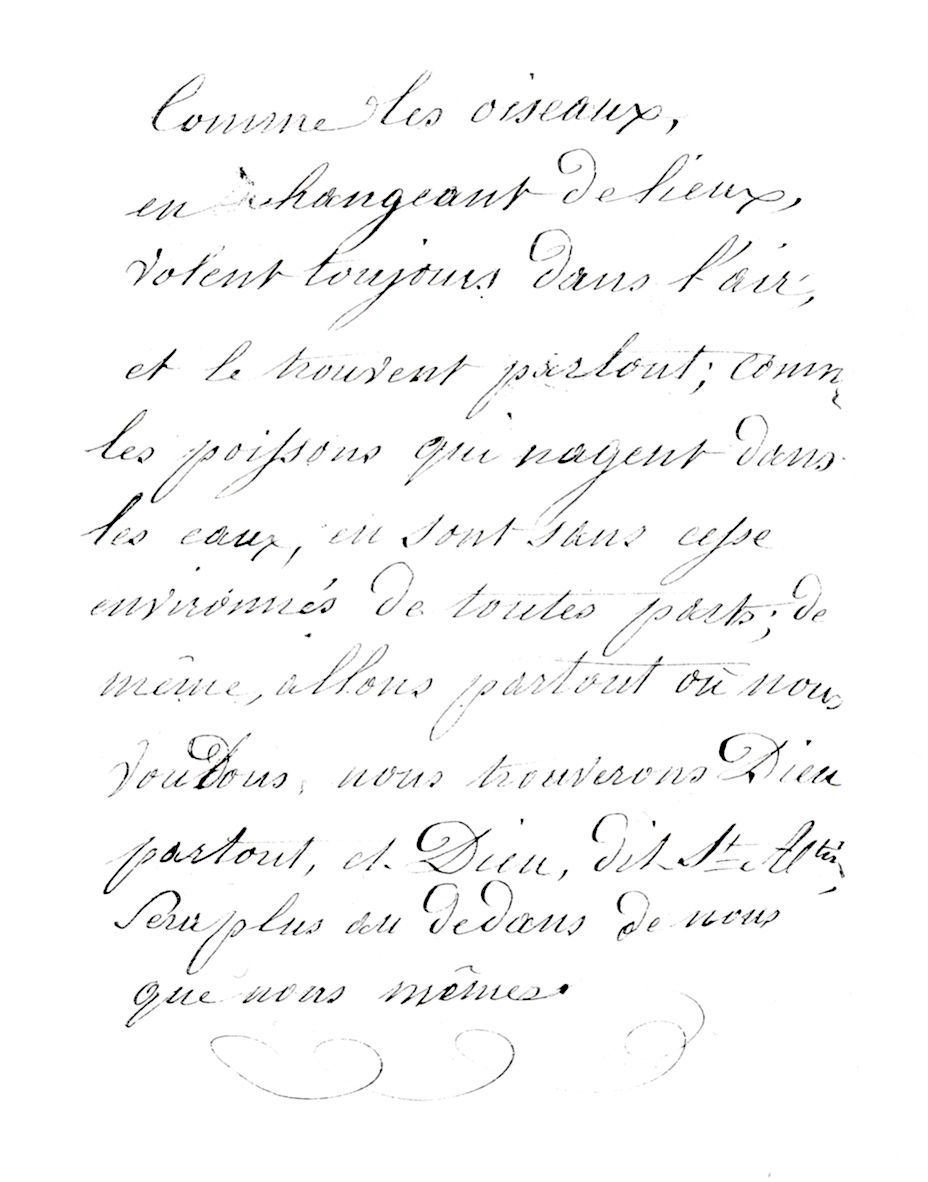 Comme les oiseaux,
en changeant de lieux,
volent toujours dans l'air,
et le trouvent partout; comme
les poissons qui nagent dans
les eaux, en sont sans cesse
environnés de toutes parts; de
même, allons partout où nous
voudons, nous trouverons Dieu
partout, et Dieu, dit St
sera plus au dedans de nous
que nous mêmes.